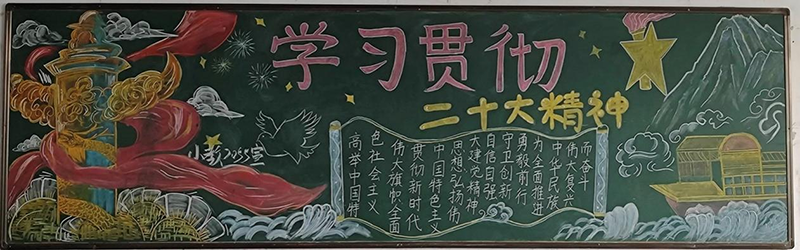 学习贯彻
二十大精神
高举中国特
色社会主义
伟大旗帜全面
贯彻新时代
中国特色主义
思想弘扬伟
大建党精神。
自信自强
守卫创新
勇毅前行
为全面推进
中华民族
伟大复兴
而奋斗